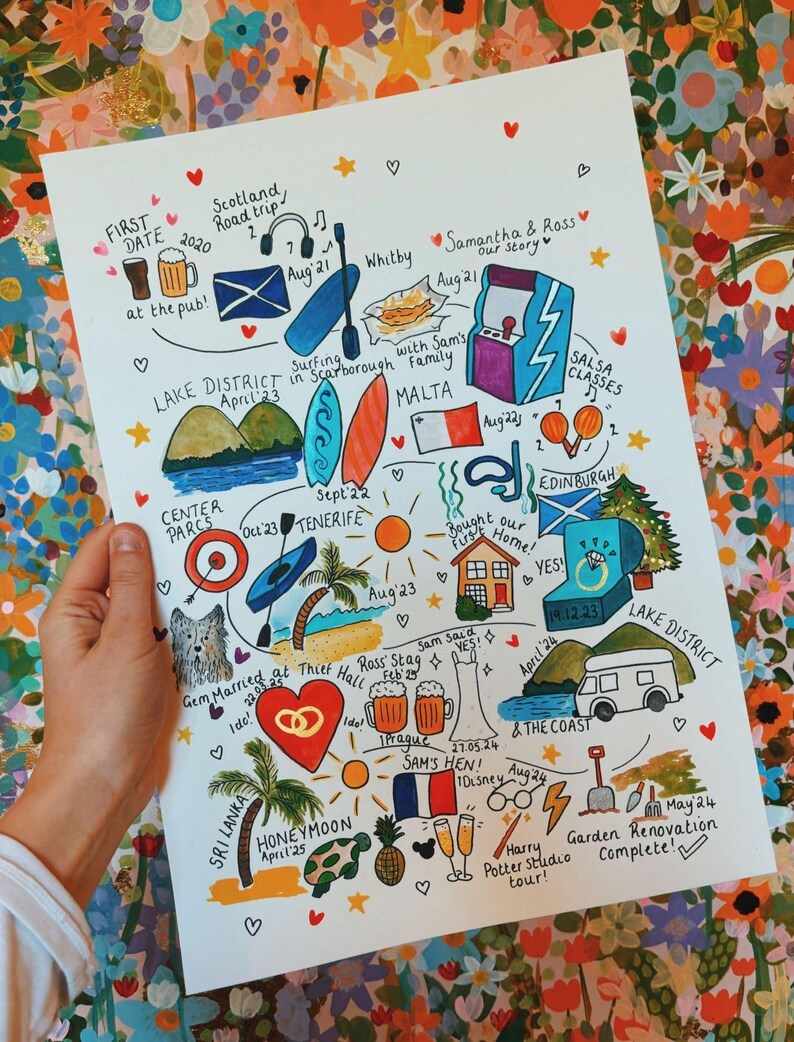 FIRST
DATE 2020
at the pub!
Scotland
Roadtrip
Aug'21
Whitby
Aug'21
with Sam's
Family
Samantha & Ross
our story
Surfing
in Scarborough
Sept'22
LAKE DISTRICT
April'23
MALTA
Aug'22
SALSA
CLASSES
CENTER
PARCS
Oct'23
TENERIFE
Aug'23
Bought our
first Home!
EDINBURGH
YES!
19.12.23
Gem
Married at Thief Hall
22.03.25
I do!
I do!
Ross' Stag
Feb'25
Prague
Sam said
YES!
27.05.24
April'24
LAKE DISTRICT
& THE COAST
SRI LANKA
HONEYMOON
April'25
SAM'S HEN!
Disney
Aug'24
Harry
Potter Studio
tour!
May'24
Garden Renovation
Complete!